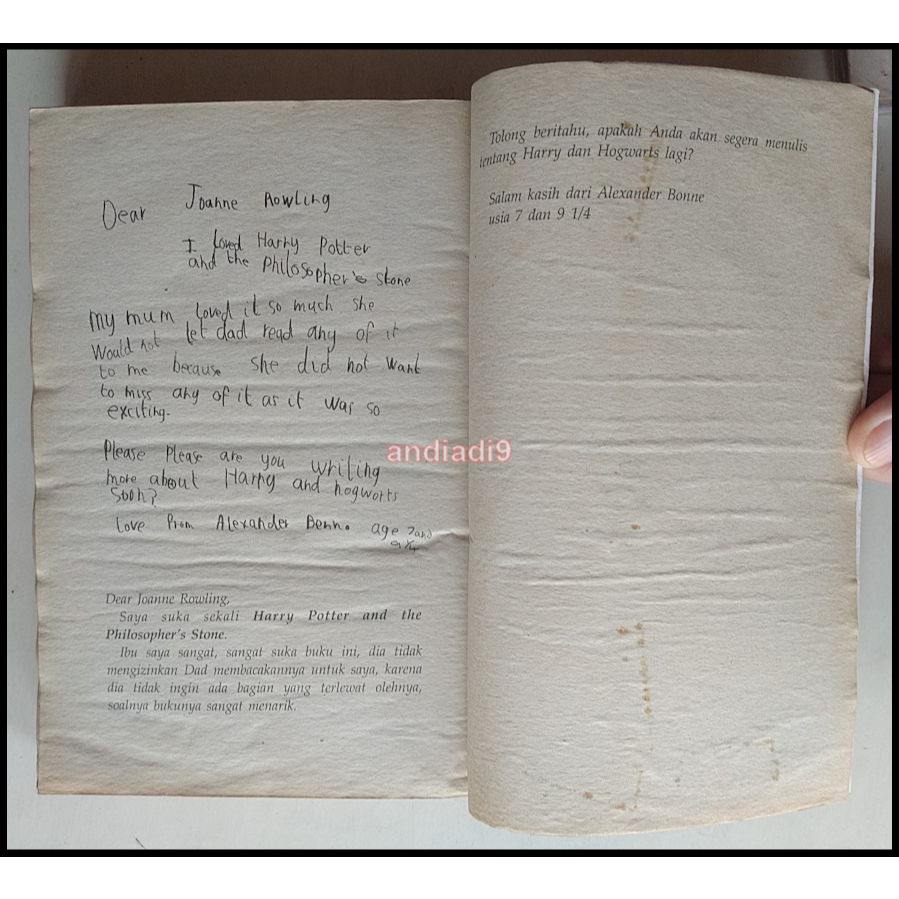 Dear Joanne Rowling
I loved Harry Potter
and the Philosopher's Stone
My mum loved it so much she
would not let dad read any of it
to me because she did not want
to miss any of it as it was so
exciting.
Please Please are you writing
more about Harry and hogworts
soon?
Love from Alexander Benn. age 7 and
9 1/4
Dear Joanne Rowling,
Saya suka sekali Harry Potter and the
Philosopher's Stone.
Ibu saya sangat, sangat suka buku ini, dia tidak
mengizinkan Dad membacakannya untuk saya, karena
dia tidak ingin ada bagian yang terlewat olehnya,
soalnya bukunya sangat menarik.
Tolong beritahu, apakah Anda akan segera menulis
tentang Harry dan Hogwarts lagi?
Salam kasih dari Alexander Bonne
usia 7 dan 9 1/4
andiadi9